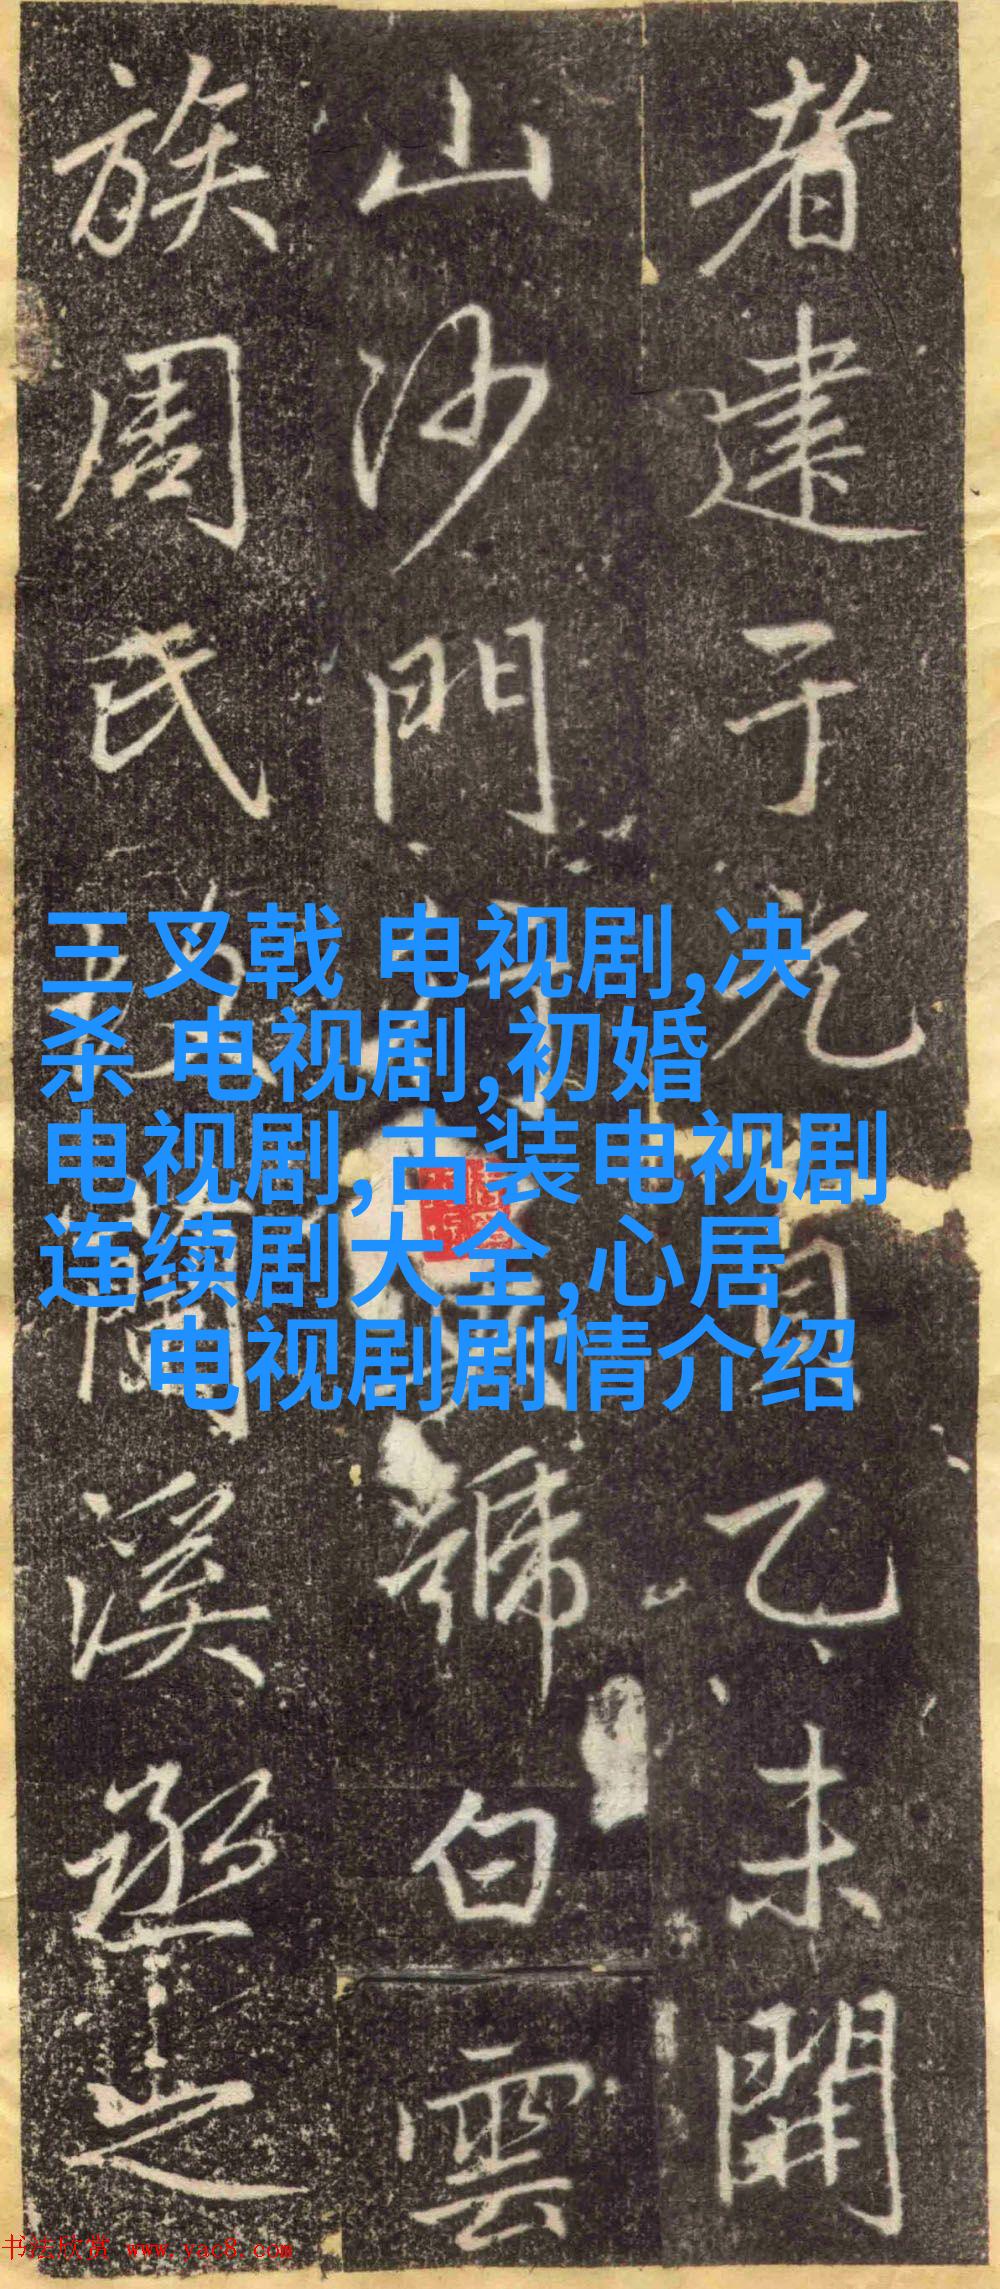 者建于光乙未開
山沙門號白雲
族周氏溪丞之
三叉戟 电视剧,决
杀 电视剧,初婚
电视剧,古装电视剧
连续剧大全,心居
电视剧剧情介绍
书法欣赏 www.yac8.com